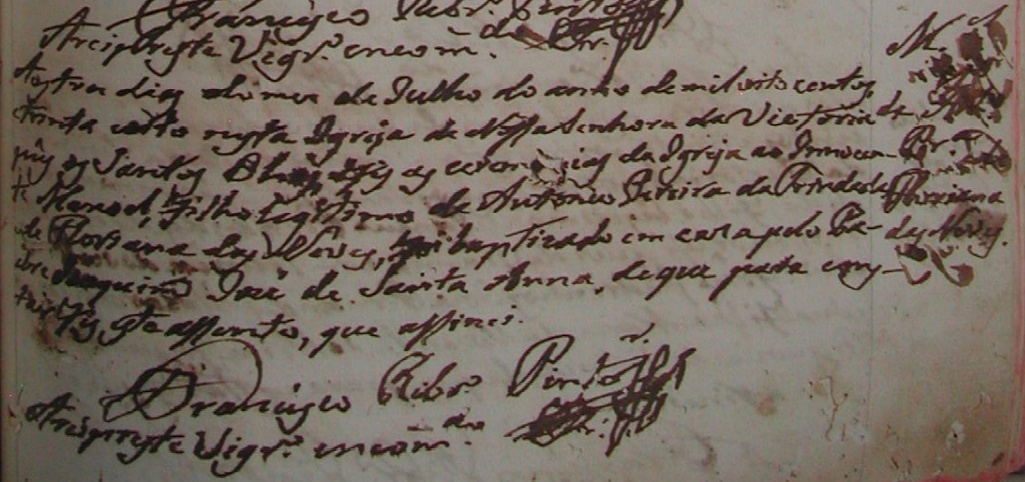 Francisco Ribr.º Pinto
Arcipreste Vigr.º encom.do
Aos tres dias do mes de Julho do anno de mil oito centos
trinta e oito nesta Igreja de Nossa Senhora da Victoria
pus os Santos Oleos, e fis as ceremonias da Igreja ao Innocen-
te Manoel, filho legitimo de Antonio Pereira da Trindade
de Floriana das Neves, foi baptizado em casa pelo Pa-
dre Joaquim José de Santa Anna, de que para cons-
tar fis este assento, que assinei.
Francisco Ribr.º Pinto
Arcipreste Vigr.º encom.do
M.el
Floriana
das Neves.